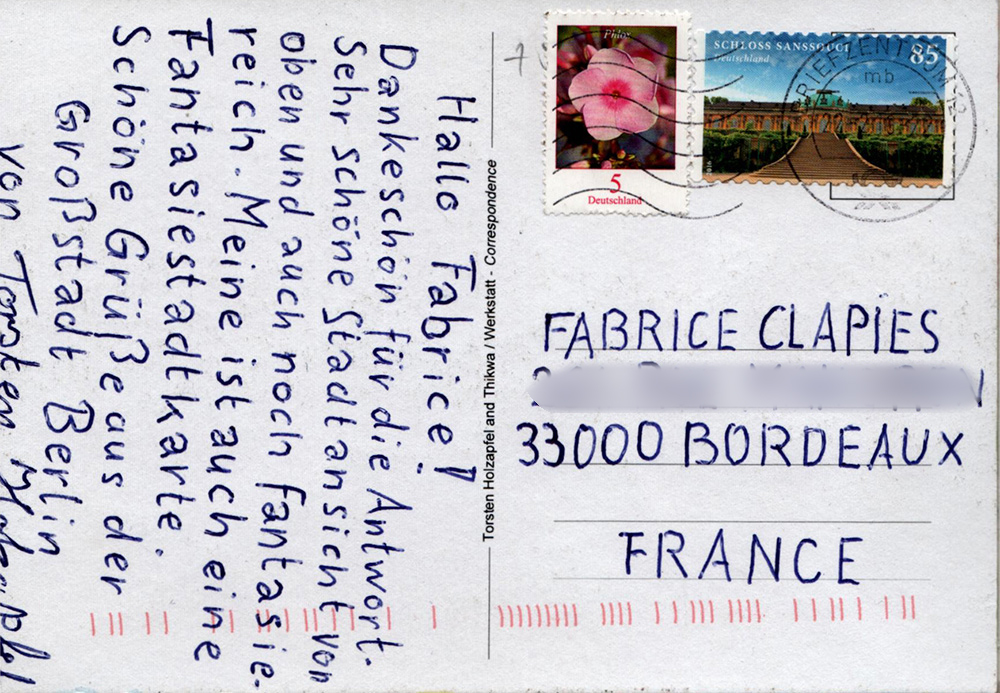 Hallo Fabrice!
Dankeschön für die Antwort.
Sehr schöne Stadtansicht von
oben und auch noch fantasie-
reich. Meine ist auch eine
Fantasiestadtkarte.
Schöne Grüße aus der
Großstadt Berlin
von Torsten Holzapfel
Torsten Holzapfel and Thikwa / Werkstatt - Correspondence
Phlox
5
Deutschland
SCHLOSS SANSSOUCI
Deutschland
85
BRIEFZENTRUM
mb
FABRICE CLAPIES
33000 BORDEAUX
FRANCE